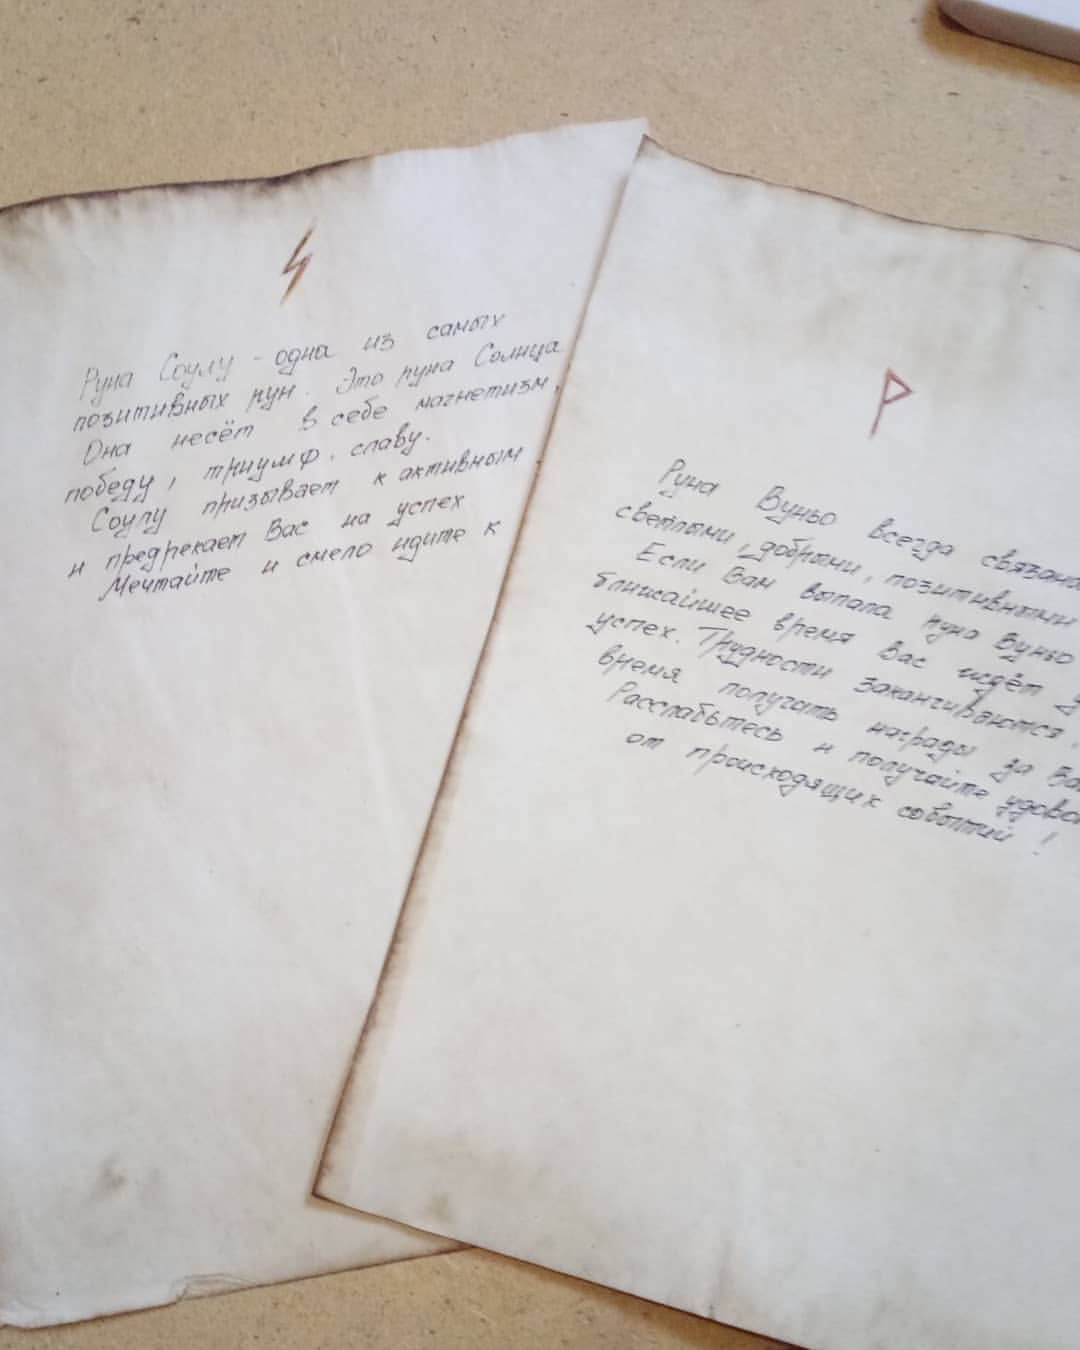 Руна Соулу - одна из самых
позитивных рун. Это руна Солнца
Она несёт в себе магнетизм,
победу, триумф, славу.
Соулу призывает к активным
и предрекает Вас на успех
Мечтайте и смело идите к
Руна Вуньо всегда связана
светлыми, добрыми, позитивными
Если Вам выпала руна Вуньо
ближайшее время Вас ждёт
успех. Трудности заканчиваются,
время получать награды за
Расслабьтесь и получайте
от происходящих событий!